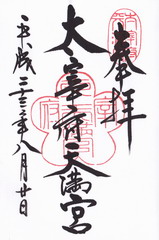 奉拝
太宰府天満宮
平成二三年八月廿日